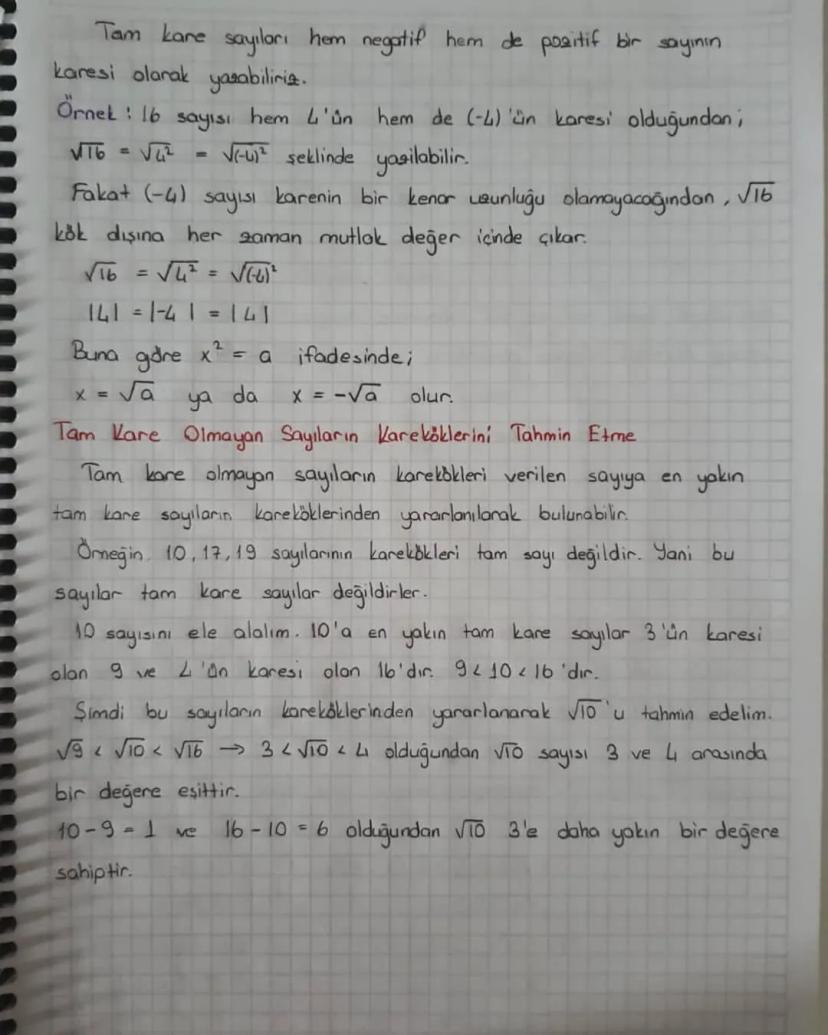 Tam kare sayıları hem negatif hem de pozitif bir sayının
karesi olarak yazabiliriz.
Örnek : 16 sayısı hem 4'ün hem de (-4)'ün karesi olduğundan;
√16 = √4² = √(-4)² şeklinde yazılabilir.
Fakat (-4) sayısı karenin bir kenar uzunluğu olamayacağından, √16
kök dışına her zaman mutlak değer içinde çıkar.
√16 = √4² = √(-4)²
|4| = |-4| = |4|
Buna göre x² = a ifadesinde;
x = √a ya da x = -√a olur.
Tam Kare Olmayan Sayıların Kareköklerini Tahmin Etme
Tam kare olmayan sayıların karekökleri verilen sayıya en yakın
tam kare sayıların kareköklerinden yararlanılarak bulunabilir.
Örneğin 10, 17, 19 sayılarının karekökleri tam sayı değildir. Yani bu
sayılar tam kare sayılar değildirler.
10 sayısını ele alalım. 10'a en yakın tam kare sayılar 3'ün karesi
olan 9 ve 4'ün karesi olan 16'dır. 9 < 10 < 16 'dır.
Şimdi bu sayıların kareköklerinden yararlanarak √10 'u tahmin edelim.
√9 < √10 < √16 → 3 < √10 < 4 olduğundan √10 sayısı 3 ve 4 arasında
bir değere eşittir.
10 - 9 = 1 ve 16 - 10 = 6 olduğundan √10 3'e daha yakın bir değere
sahiptir.